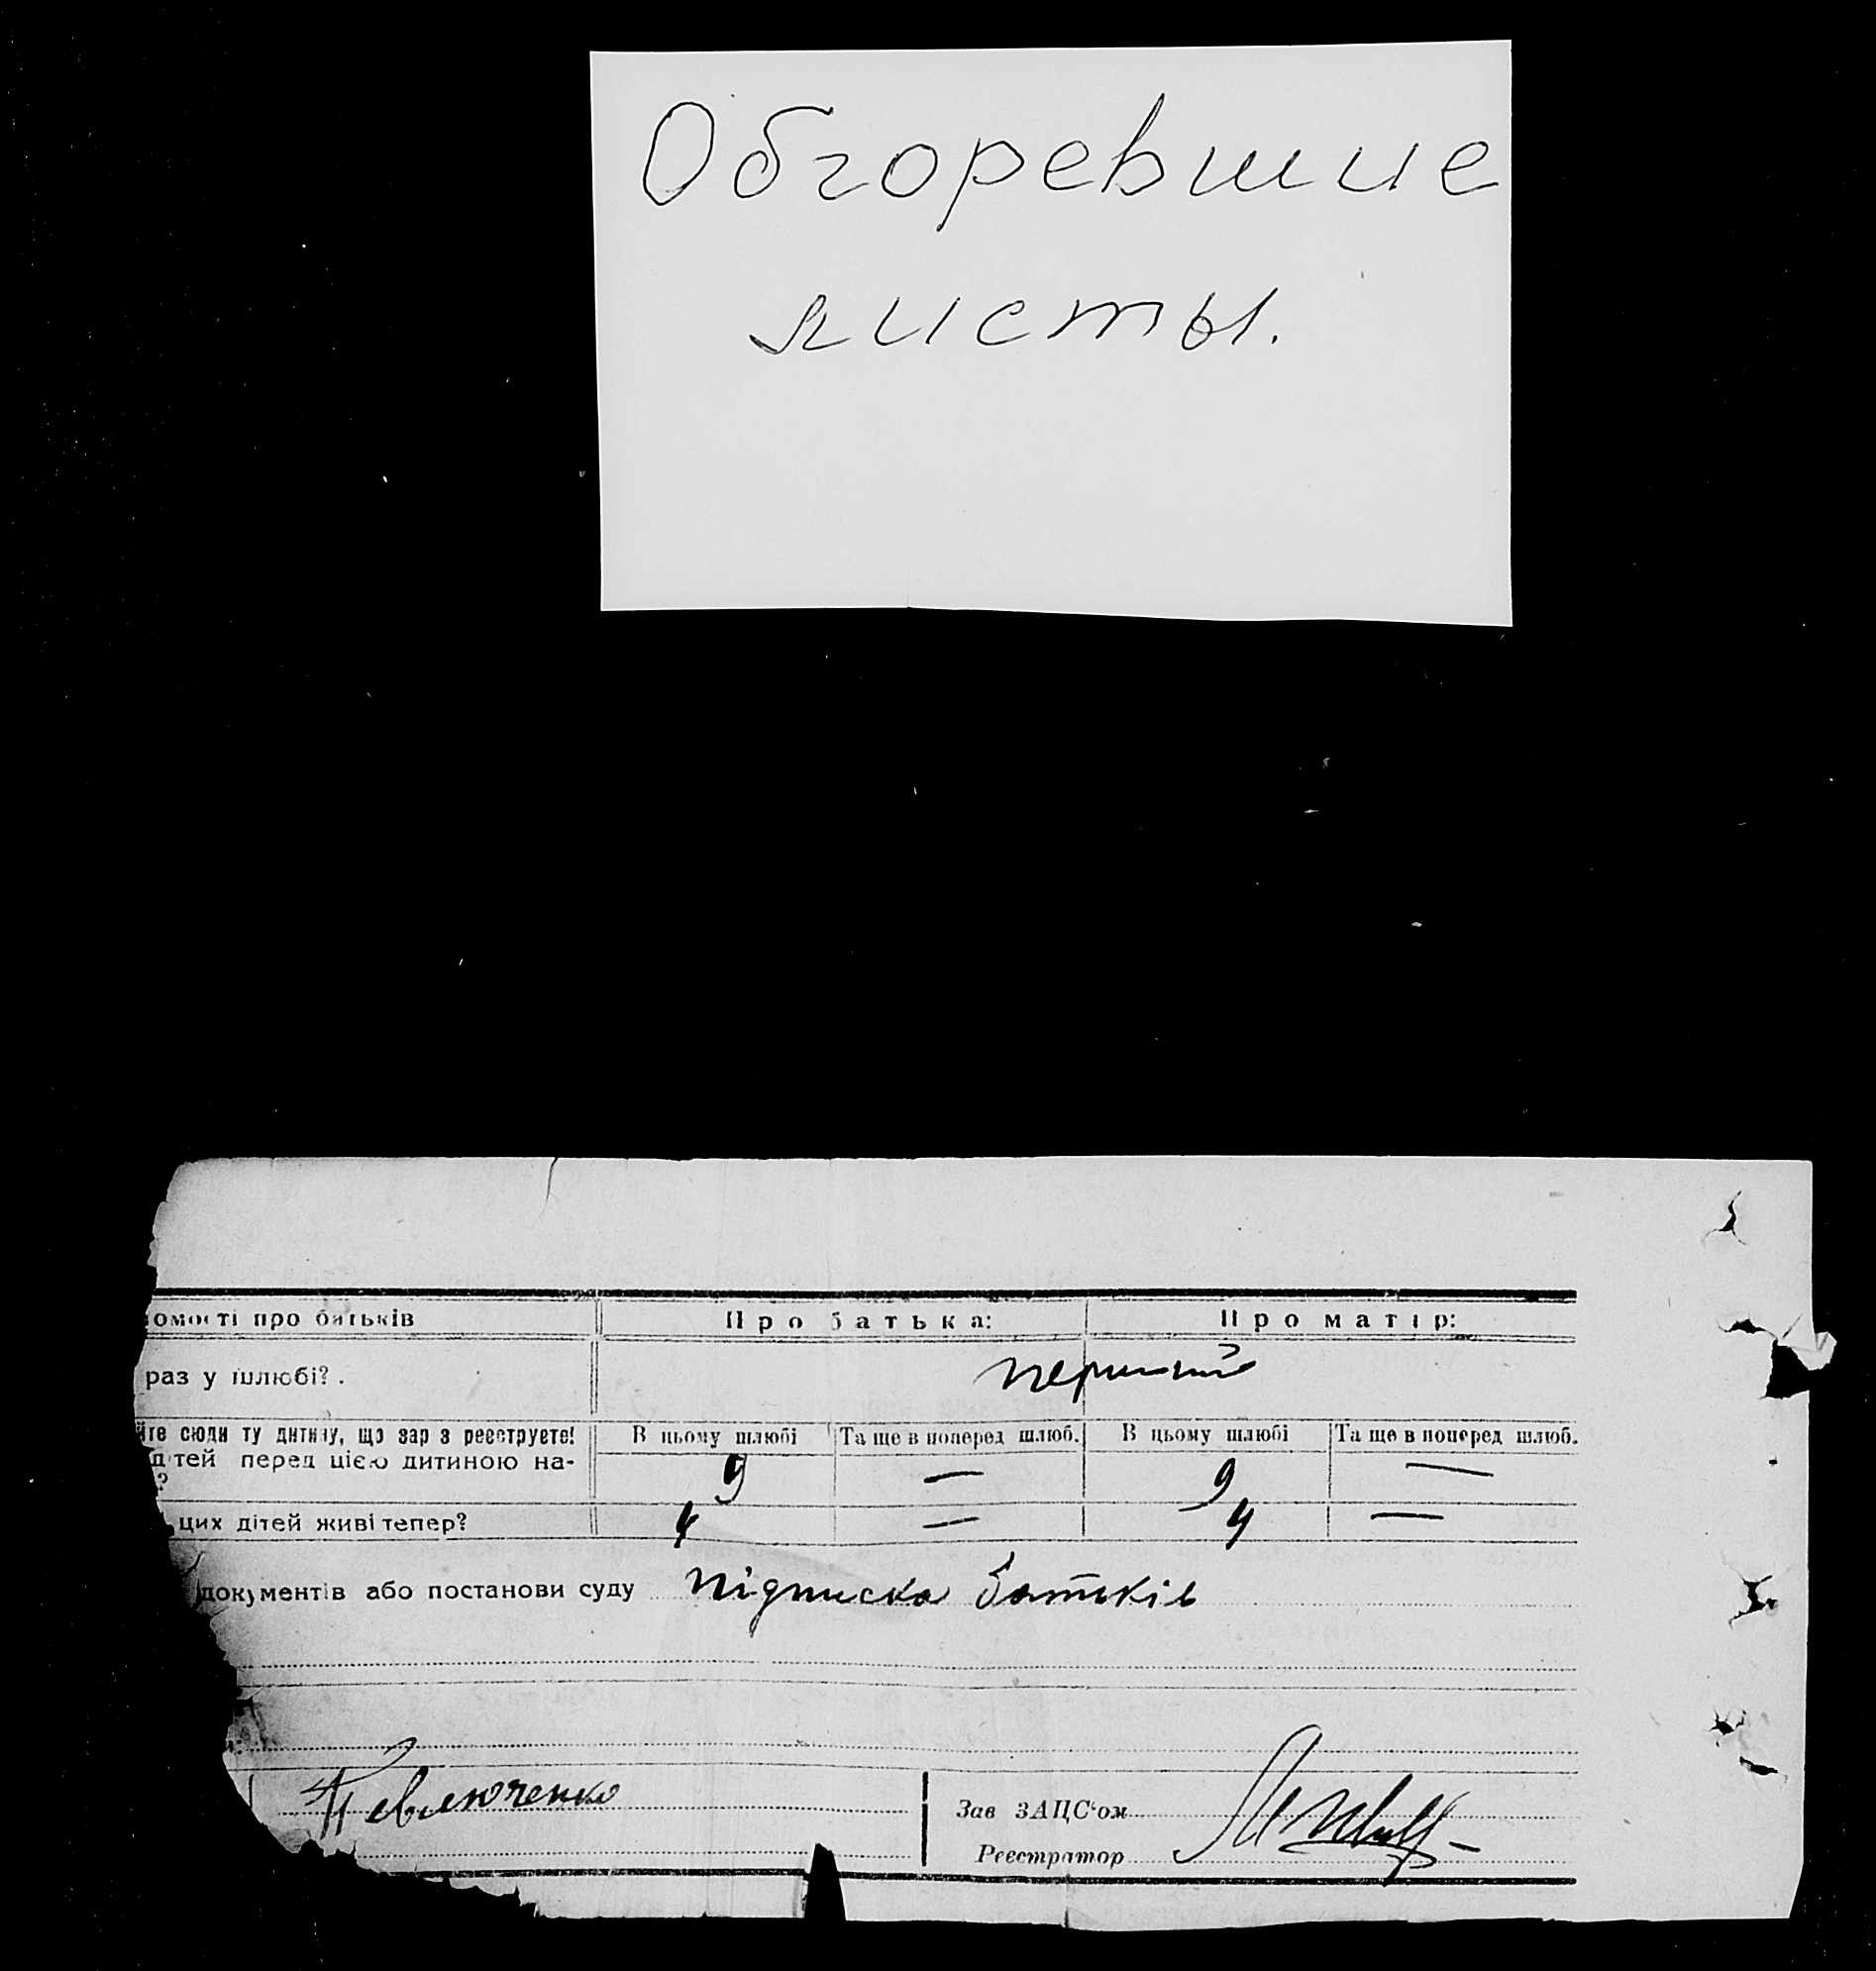 Обгоревшие
листы.
омості про батьків
Про батька:
Про матір:
раз у шлюбі? .
перший
йте сюди ту дитину, що зар з реєструєте!
В цьому шлюбі
Та ще в поперед шлюб.
В цьому шлюбі
Та ще в поперед шлюб.
дітей перед цією дитиною на-
?
9
—
9
—
цих дітей живі тепер?
4
—
4
—
документів або постанови суду
підписка батьків
Зав ЗАЦС‘ом
Реєстратор